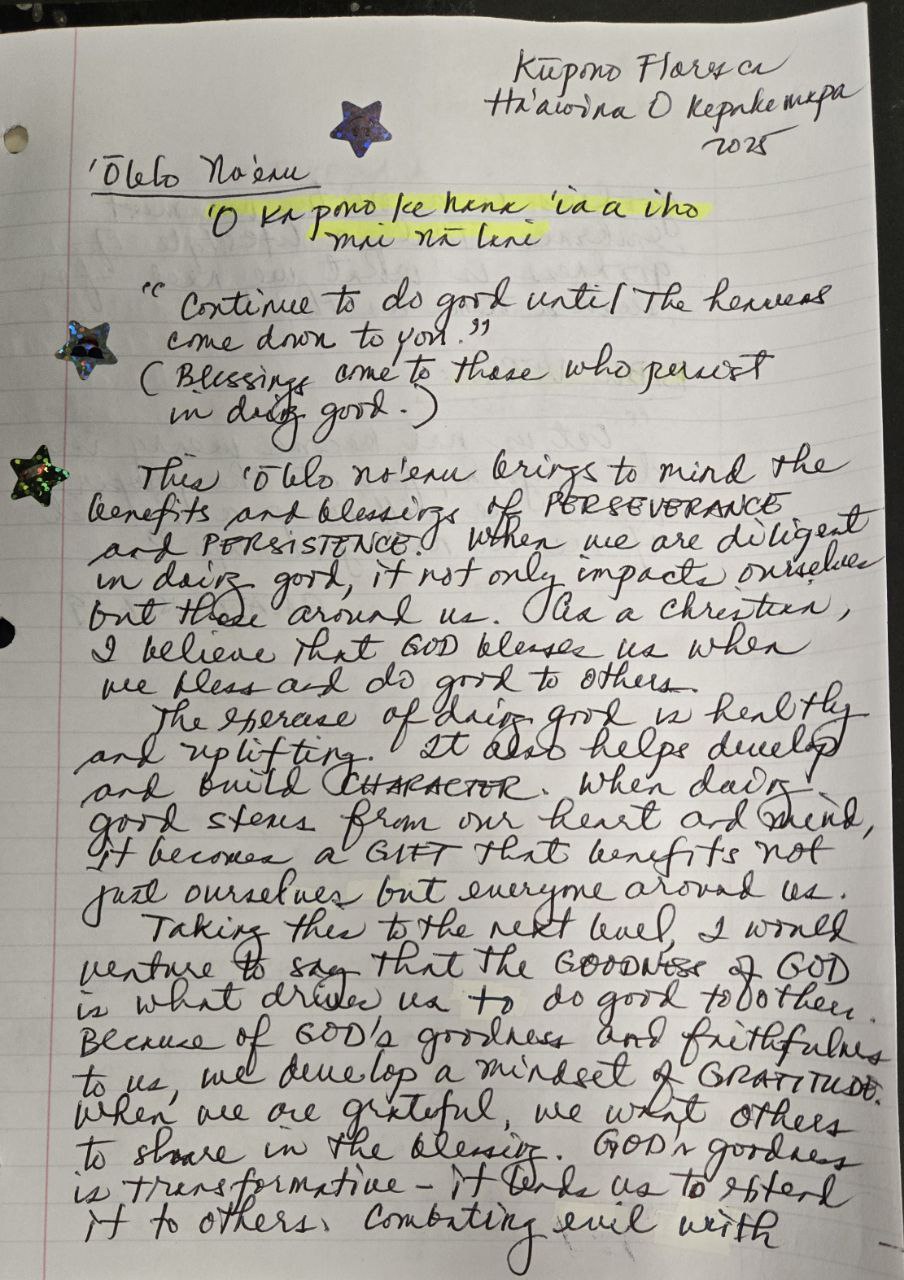 Kūpono Floresca
Ha'awina O Kepakemapa
2025
'Ōlelo No'eau
'O ka pono ke hana 'ia a iho
mai nā lani
"Continue to do good until The heavens
come down to you."
(Blessings come to those who persist
in doing good.)
This 'Ōlelo no'eau brings to mind the
benefits and blessings of PERSEVERANCE
and PERSISTENCE. When we are diligent
in doing good, it not only impacts ourselves
but those around us. As a Christian,
I believe that GOD blesses us when
we bless and do good to others.
The exercise of doing good is healthy
and uplifting. It also helps develop
and build CHARACTER. When doing
good stems from our heart and mind,
it becomes a GIFT that benefits not
just ourselves but everyone around us.
Taking this to the next level, I would
venture to say that the GOODNESS of GOD
is what drives us to do good to others.
Because of GOD's goodness and faithfulness
to us, we develop a mindset of GRATITUDE.
When we are grateful, we want others
to share in the blessing. GOD's goodness
is transformative - it leads us to extend
it to others. Combating evil with